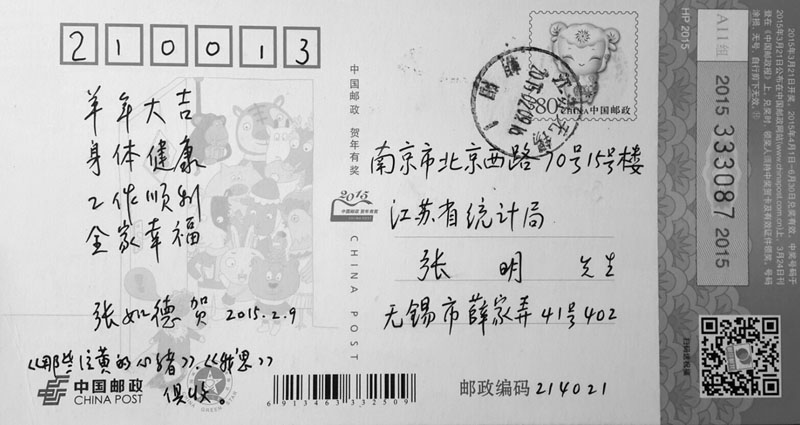 210013
羊年大吉
身体健康
工作顺利
全家幸福
张如德 贺 2015.2.9
《那些泛黄的心绪》、《我思》
俱收。
中国邮政
CHINA POST
6 913463 332509
中国邮政 贺年有奖
2015
中国邮政 贺年有奖
CHINA POST
80分 CHINA 中国邮政
江苏无锡
2015.02.09.16
南京市北京西路70号15号楼
江苏省统计局
张 明 先生
无锡市薛家弄41号402
邮政编码 214021
HP 2015
A11组
2015 333087 2015